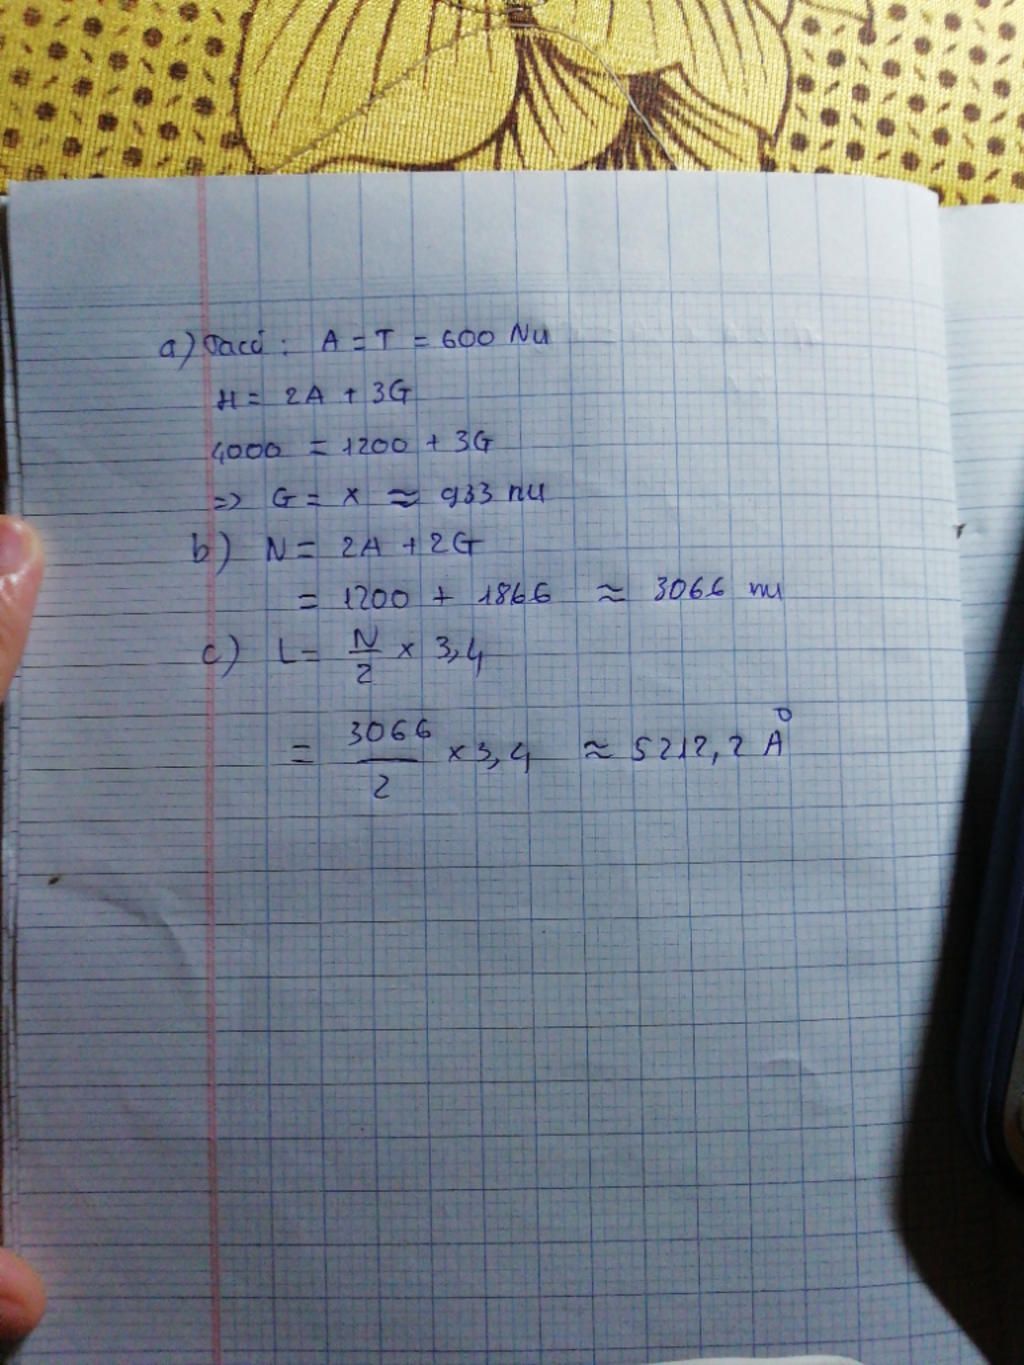 a) Ta có : A = T = 600 Nu
H = 2A + 3G
4000 = 1200 + 3G
=> G = X ≈ 933 nu
b) N = 2A + 2G
= 1200 + 1866 ≈ 3066 nu
c) L = N/2 × 3,4
= 3066/2 × 3,4 ≈ 5212,2 Å